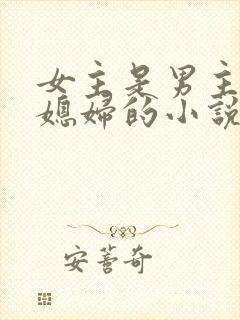 女主是男主
媳婦的小說
安蓍奇